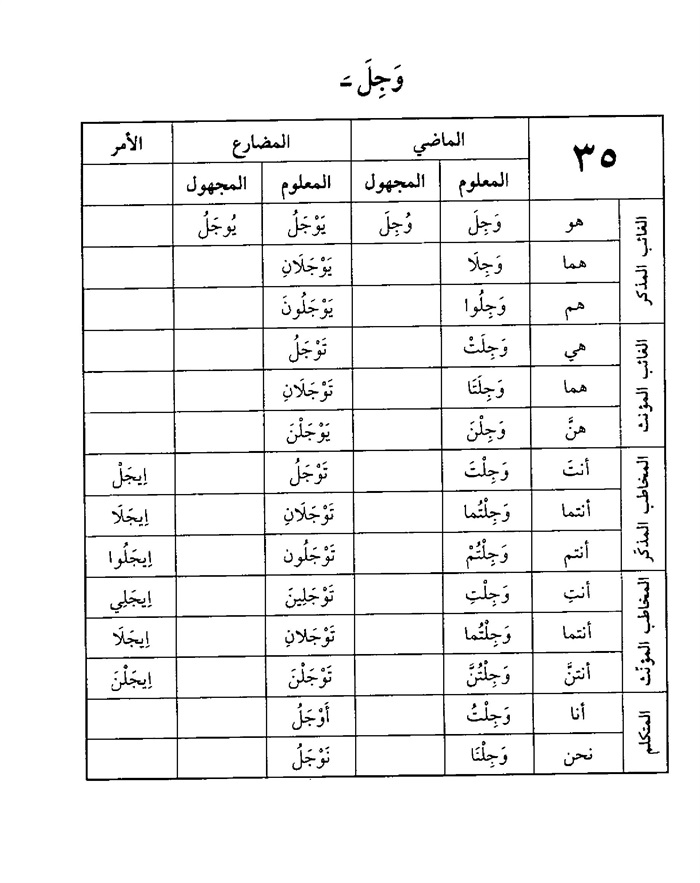 وَجِلَ ـَ
٣٥ الماضي المضارع الأمر
المعلوم المجهول المعلوم المجهول
الغائب المذكر
هو وَجِلَ وُجِلَ يَوْجَلُ يُوجَلُ
هما وَجِلَا يَوْجَلَانِ
هم وَجِلُوا يَوْجَلُونَ
الغائب المؤنث
هي وَجِلَتْ تَوْجَلُ
هما وَجِلَتَا تَوْجَلَانِ
هنَّ وَجِلْنَ يَوْجَلْنَ
المخاطب المذكر
أنتَ وَجِلْتَ تَوْجَلُ اِيجَلْ
أنتما وَجِلْتُما تَوْجَلَانِ اِيجَلَا
أنتم وَجِلْتُمْ تَوْجَلُون اِيجَلُوا
المخاطب المؤنّث
أنتِ وَجِلْتِ تَوْجَلِينَ اِيجَلِي
أنتما وَجِلْتُما تَوْجَلانِ اِيجَلَا
أنتنَّ وَجِلْتُنَّ تَوْجَلْنَ اِيجَلْنَ
المتكلم
أنا وَجِلْتُ أَوْجَلُ
نحن وَجِلْنَا نَوْجَلُ